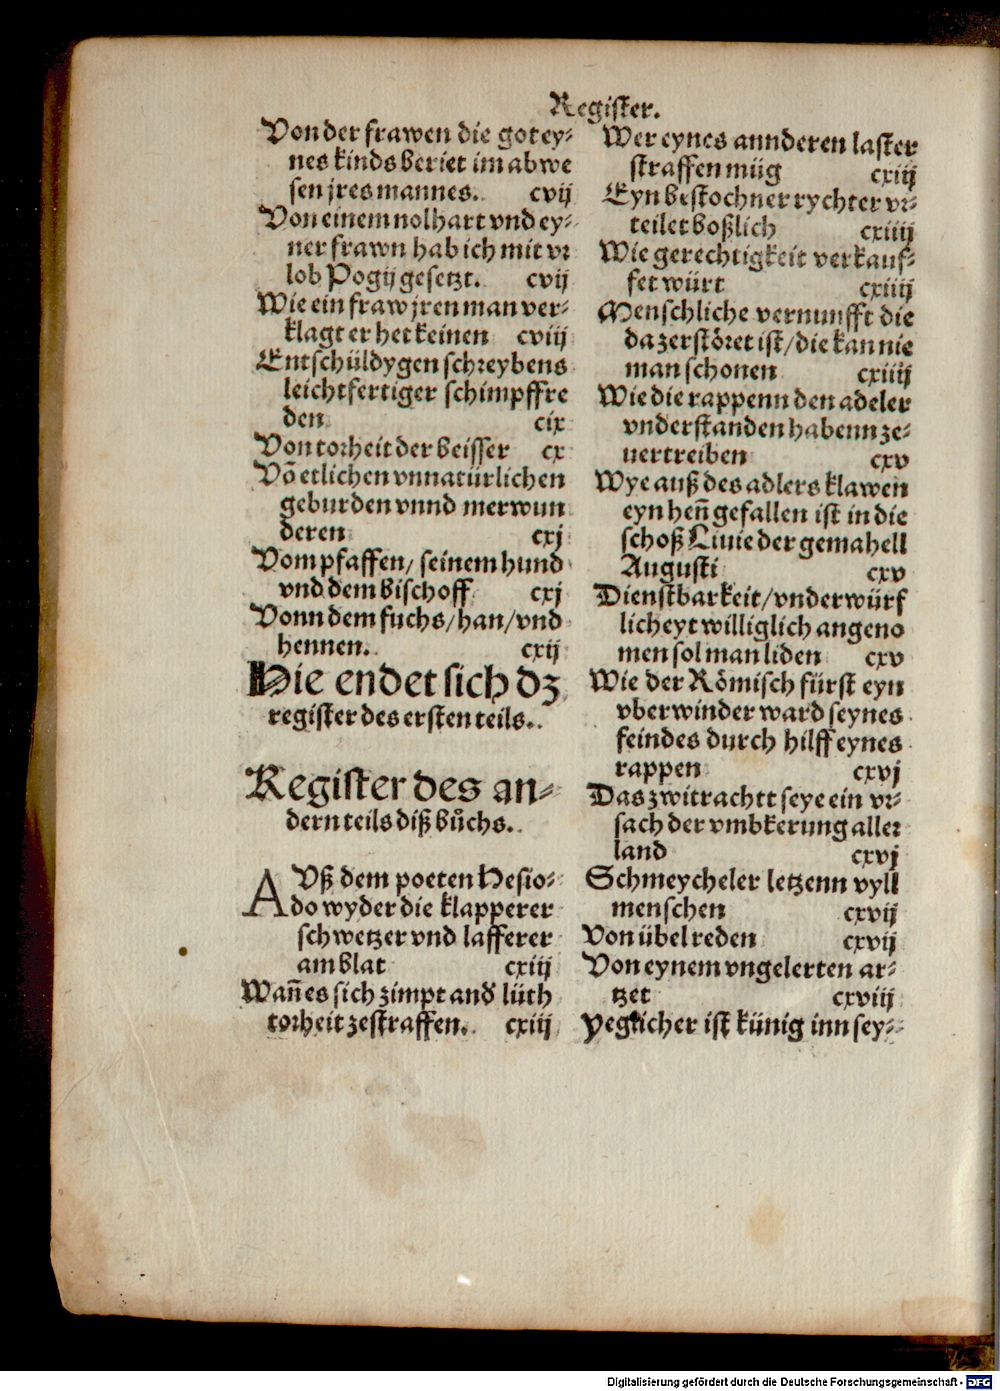 Register.
Von der frawen die got ey⸗
nes kinds beriet im abwe
sen jres mannes. cvij
Von einem nolhart vnd ey⸗
ner frawn hab ich mit vr
lob Pogij gesetzt. cvij
Wie ein fraw jren man ver⸗
klagt er het keinen cviij
Entschüldygen schreybens
leichtfertiger schimpffre
den cix
Von torheit der beisser cx
Võ etlichen vnnatürlichen
geburden vnnd merwun
deren cxj
Vom pfaffen/ seinem hund
vnd dem bischoff cxj
Vonn dem fuchs/han/vnd
hennen. cxij
Hie endet sich dz
register des ersten teils.
Register des an⸗
dern teils diß bůchs.
AVß dem poeten Hesio⸗
do wyder die klapperer
schwetzer vnd lafferer
am blat cxiij
Wañ es sich zimpt and̛ lüth
torheit ze straffen. cxiij
Wer eynes annderen laster
straffen müg cxiij
Eyn bestochner rychter vr⸗
teilet boßlich cxiiij
Wie gerechtigkeit verkauf⸗
fet würt cxiiij
Menschliche vernunfft die
da zerstöret ist/die kan nie
man schonen cxiiij
Wie die rappenn den adeler
vnderstanden habenn ze⸗
uertreiben cxv
Wye auß des adlers klawen
eyn heñ gefallen ist in die
schoß Liuie der gemahell
Augusti cxv
Dienstbarkeit/vnderwürf
licheyt williglich angeno
men sol man liden cxv
Wie der Römisch fürst eyn
vberwinder ward seynes
feindes durch hilff eynes
rappen cxvj
Das zwitrachtt seye ein vr⸗
sach der vmbkerung aller
land cxvj
Schmeycheler letzenn vyll
menschen cxvij
Von übel reden cxvij
Von eynem vngelerten ar⸗
tzet cxviij
Yegklicher ist künig inn sey⸗
Digitalisierung gefördert durch die Deutsche Forschungsgemeinschaft - DFG